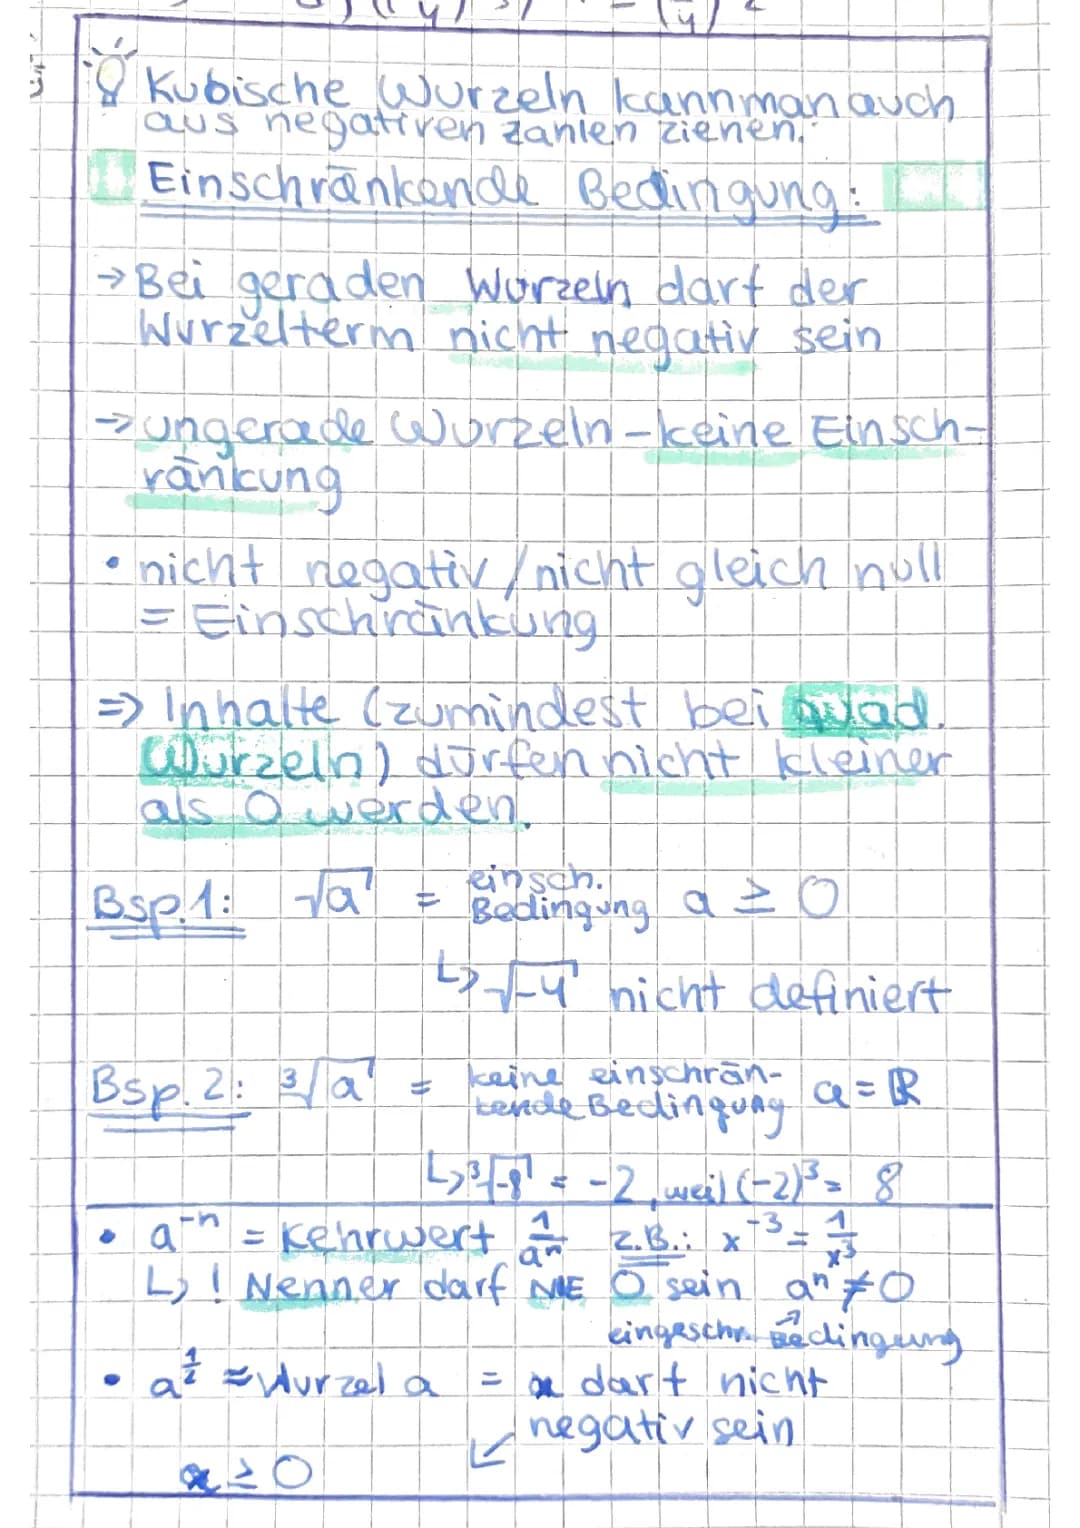 Kubische Wurzeln kann man auch
aus negativen zahlen ziehen.
Einschränkende Bedingung:
→ Bei geraden Wurzeln darf der
Wurzelterm nicht negativ sein
→ ungerade Wurzeln - keine Einsch-
ränkung
• nicht negativ / nicht gleich null
= Einschränkung
=> Inhalte (zumindest bei quad.
Wurzeln) dürfen nicht kleiner
als 0 werden.
Bsp.1: √a = einsch. Bedingung a ≥ 0
↳ √-4 nicht definiert
Bsp. 2: ³√a = keine einschrän- kende Bedingung a = ℝ
↳ ³√-8 = -2, weil (-2)³ = 8
• a⁻ⁿ = Kehrwert 1/aⁿ z.B.: x⁻³ = 1/x³
↳ ! Nenner darf NIE 0 sein aⁿ ≠ 0
eingeschr. Bedingung
• a^½ ≈ Wurzel a = a darf nicht
negativ sein
a ≥ 0